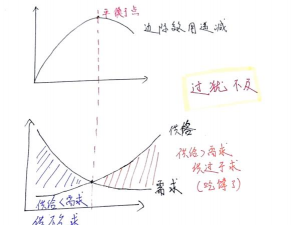 平衡点
边际效用递减
过犹不及
供给
供给>需求
供过于求
需求
(吃撑了)
供给<需求
供不应求